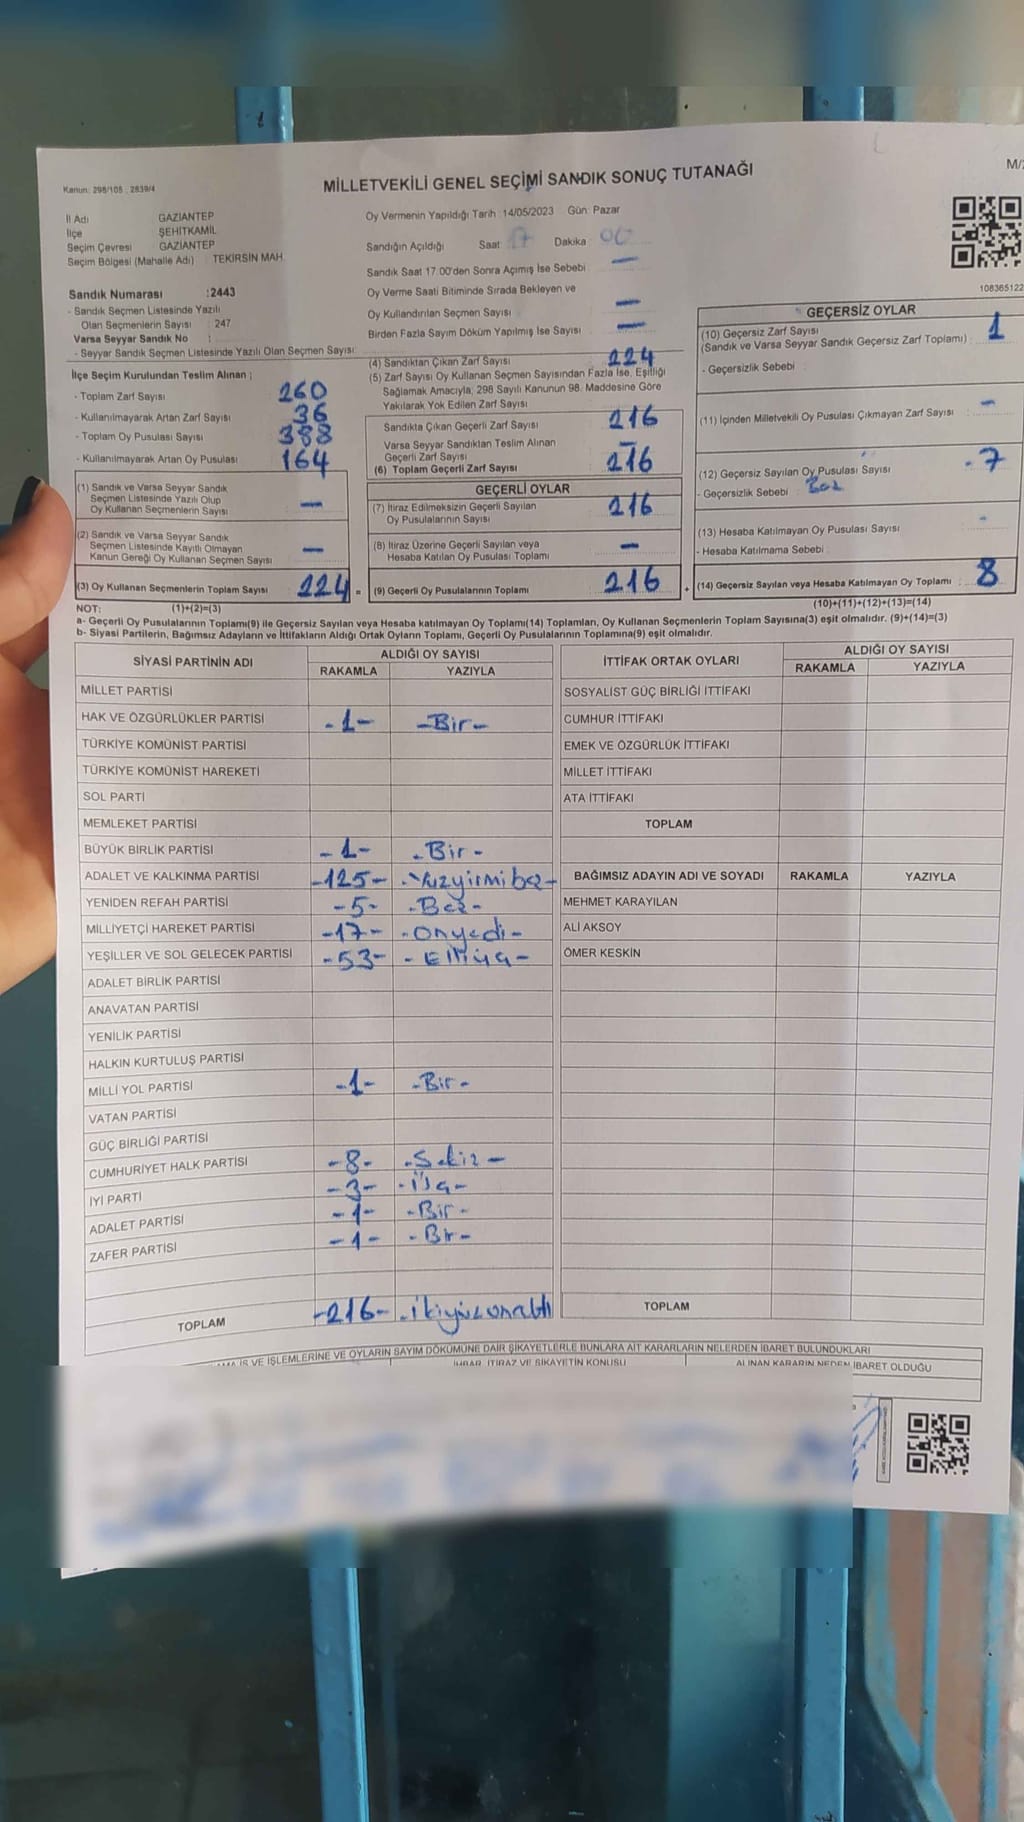 Kanun: 298/105 : 2839/4
MİLLETVEKİLİ GENEL SEÇİMİ SANDIK SONUÇ TUTANAĞI
M/
İl Adı GAZİANTEP
İlçe ŞEHİTKAMİL
Seçim Çevresi GAZİANTEP
Seçim Bölgesi (Mahalle Adı) : TEKİRSİN MAH.
Oy Vermenin Yapıldığı Tarih : 14/05/2023 Gün: Pazar
Sandığın Açıldığı Saat 17 Dakika 00
Sandık Saat 17.00'den Sonra Açımış İse Sebebi —
Oy Verme Saati Bitiminde Sırada Bekleyen ve
Oy Kullandırılan Seçmen Sayısı —
Birden Fazla Sayım Döküm Yapılmış İse Sayısı —
108365122
Sandık Numarası :2443
- Sandık Seçmen Listesinde Yazılı
Olan Seçmenlerin Sayısı : 247
Varsa Seyyar Sandık No :
- Seyyar Sandık Seçmen Listesinde Yazılı Olan Seçmen Sayısı:
İlçe Seçim Kurulundan Teslim Alınan ;
- Toplam Zarf Sayısı 260
- Kullanılmayarak Artan Zarf Sayısı 36
- Toplam Oy Pusulası Sayısı 388
- Kullanılmayarak Artan Oy Pusulası 164
(1) Sandık ve Varsa Seyyar Sandık
Seçmen Listesinde Yazılı Olup
Oy Kullanan Seçmenlerin Sayısı —
(2) Sandık ve Varsa Seyyar Sandık
Seçmen Listesinde Kayıtlı Olmayan
Kanun Gereği Oy Kullanan Seçmen Sayısı —
(3) Oy Kullanan Seçmenlerin Toplam Sayısı 224 =
(4) Sandıktan Çıkan Zarf Sayısı 224
(5) Zarf Sayısı Oy Kullanan Seçmen Sayısından Fazla İse, Eşitliği
Sağlamak Amacıyla; 298 Sayılı Kanunun 98. Maddesine Göre
Yakılarak Yok Edilen Zarf Sayısı
Sandıkta Çıkan Geçerli Zarf Sayısı 216
Varsa Seyyar Sandıktan Teslim Alınan
Geçerli Zarf Sayısı —
(6) Toplam Geçerli Zarf Sayısı 216
GEÇERLİ OYLAR
(7) İtiraz Edilmeksizin Geçerli Sayılan
Oy Pusulalarının Sayısı 216
(8) İtiraz Üzerine Geçerli Sayılan veya
Hesaba Katılan Oy Pusulası Toplamı —
(9) Geçerli Oy Pusulalarının Toplamı 216 +
GEÇERSİZ OYLAR
(10) Geçersiz Zarf Sayısı 1
(Sandık ve Varsa Seyyar Sandık Geçersiz Zarf Toplamı)
- Geçersizlik Sebebi :
(11) İçinden Milletvekili Oy Pusulası Çıkmayan Zarf Sayısı —
(12) Geçersiz Sayılan Oy Pusulası Sayısı 7
- Geçersizlik Sebebi :
(13) Hesaba Katılmayan Oy Pusulası Sayısı -
- Hesaba Katılmama Sebebi :
(14) Geçersiz Sayılan veya Hesaba Katılmayan Oy Toplamı 8
NOT: (1)+(2)=(3) (10)+(11)+(12)+(13)=(14)
a- Geçerli Oy Pusulalarının Toplamı(9) ile Geçersiz Sayılan veya Hesaba katılmayan Oy Toplamı(14) Toplamları, Oy Kullanan Seçmenlerin Toplam Sayısına(3) eşit olmalıdır. (9)+(14)=(3)
b- Siyasi Partilerin, Bağımsız Adayların ve İttifakların Aldığı Ortak Oyların Toplamı, Geçerli Oy Pusulalarının Toplamına(9) eşit olmalıdır.
SİYASİ PARTİNİN ADI ALDIĞI OY SAYISI
RAKAMLA YAZIYLA
MİLLET PARTİSİ
HAK VE ÖZGÜRLÜKLER PARTİSİ -1- -Bir-
TÜRKİYE KOMÜNİST PARTİSİ
TÜRKİYE KOMÜNİST HAREKETİ
SOL PARTİ
MEMLEKET PARTİSİ
BÜYÜK BİRLİK PARTİSİ -1- -Bir-
ADALET VE KALKINMA PARTİSİ -125- -Yuzyirmibeş-
YENİDEN REFAH PARTİSİ -5- -Beş-
MİLLİYETÇİ HAREKET PARTİSİ -17- -onyedi-
YEŞİLLER VE SOL GELECEK PARTİSİ -53- -Elliüç-
ADALET BİRLİK PARTİSİ
ANAVATAN PARTİSİ
YENİLİK PARTİSİ
HALKIN KURTULUŞ PARTİSİ
MİLLİ YOL PARTİSİ -1- -Bir-
VATAN PARTİSİ
GÜÇ BİRLİĞİ PARTİSİ
CUMHURİYET HALK PARTİSİ -8- -Sekiz-
İYİ PARTİ -3- -Üç-
ADALET PARTİSİ -1- -Bir-
ZAFER PARTİSİ -1- -Bir-
TOPLAM -216- -ikiyüzonaltı
İTTİFAK ORTAK OYLARI ALDIĞI OY SAYISI
RAKAMLA YAZIYLA
SOSYALİST GÜÇ BİRLİĞİ İTTİFAKI
CUMHUR İTTİFAKI
EMEK VE ÖZGÜRLÜK İTTİFAKI
MİLLET İTTİFAKI
ATA İTTİFAKI
TOPLAM
BAĞIMSIZ ADAYIN ADI VE SOYADI RAKAMLA YAZIYLA
MEHMET KARAYILAN
ALİ AKSOY
ÖMER KESKİN
TOPLAM
İŞ VE İŞLEMLERİNE VE OYLARIN SAYIM DÖKÜMÜNE DAİR ŞİKAYETLERLE BUNLARA AİT KARARLARIN NELERDEN İBARET BULUNDUKLARI
İHBAR, İTİRAZ VE ŞİKAYETİN KONUSU ALINAN KARARIN NEDEN İBARET OLDUĞU